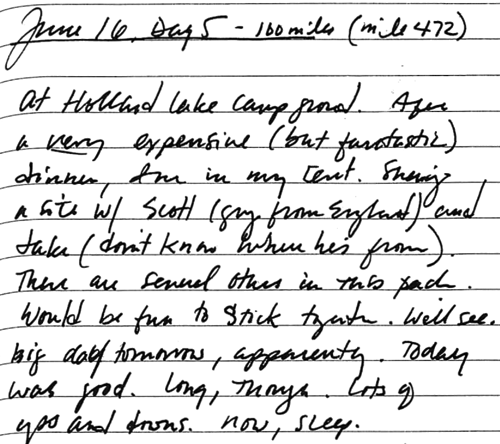 June 16, Day 5 - 100 miles (mile 472)
At Holland Lake Campground. After
a very expensive (but fantastic)
dinner, I'm in my tent. Sharing
a site w/ Scott (guy from England) and
Jake (don't know where he's from).
There are several others in this pack.
Would be fun to stick together. We'll see.
big day tomorrow, apparently. Today
was good. Long, though. Lots of
ups and downs. now, sleep.